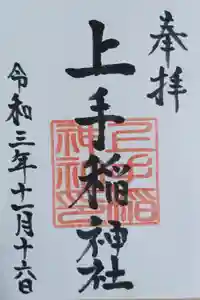 奉拝
上手稲神社
令和三年十一月十六日